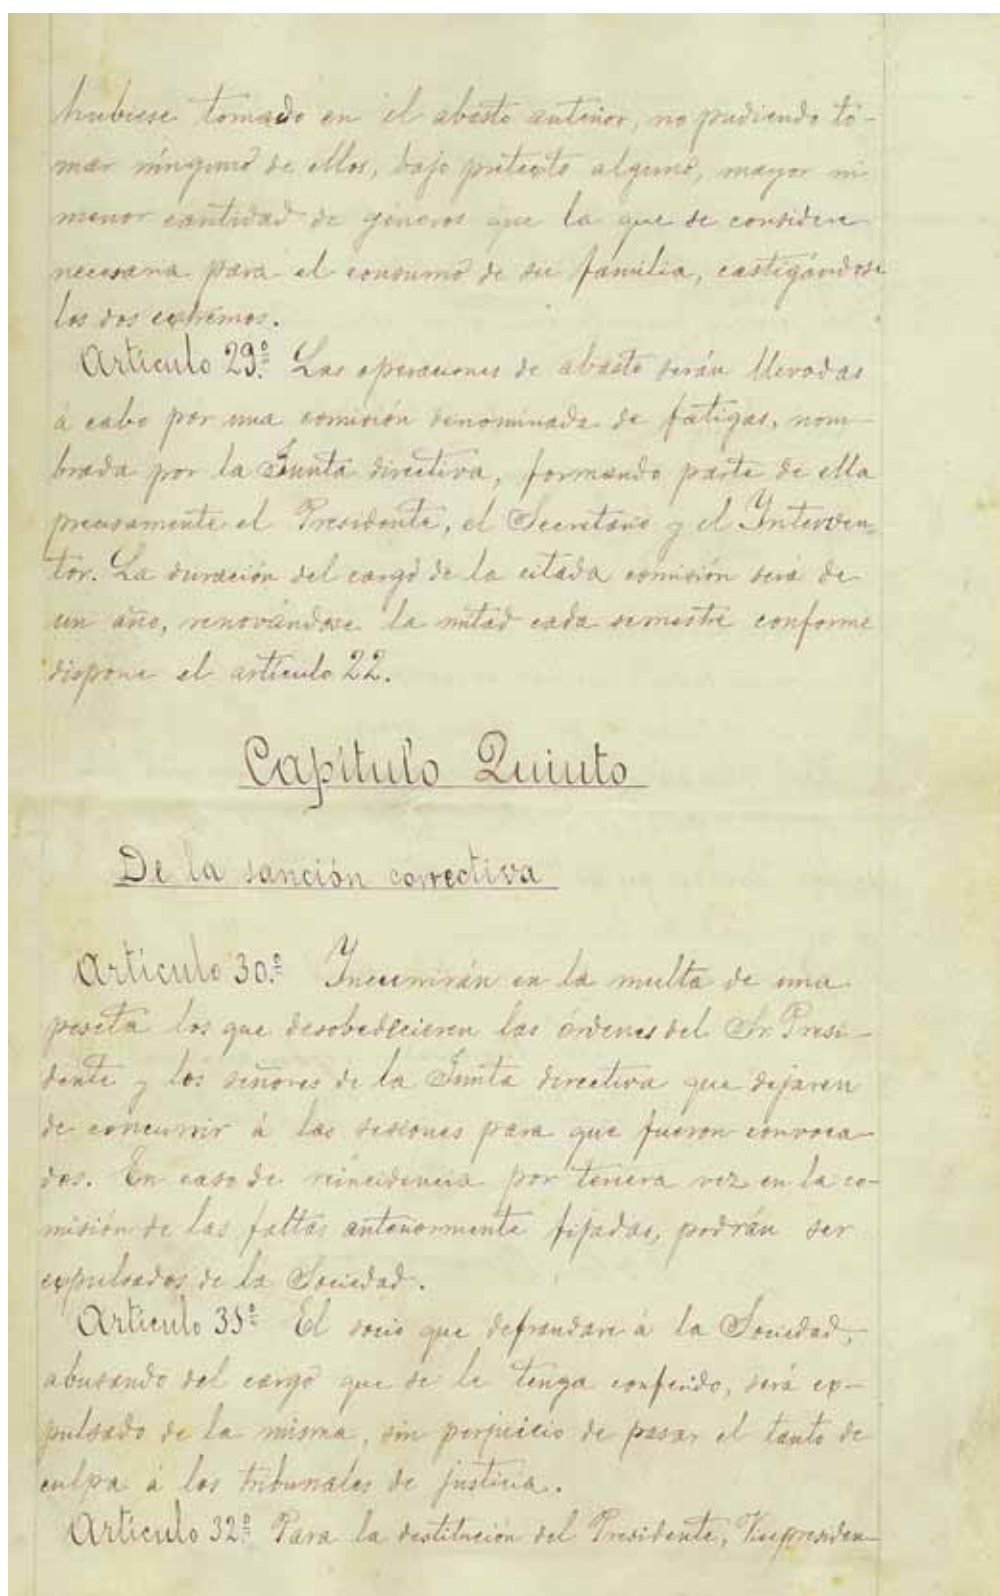 hubiese tomado en el abasto anterior, no pudiendo to-
mar ninguno de ellos, bajo pretexto alguno, mayor ni
menor cantidad de géneros que la que se considere
necesaria para el consumo de su familia, castigándose
los dos extremos.
Artículo 29.º Las operaciones de abasto serán llevadas
á cabo por una comisión denominada de fatigas, nom-
brada por la Junta directiva, formando parte de ella
precisamente el Presidente, el Secretario y el Interven-
tor. La duración del cargo de la citada comisión será de
un año, renovándose la mitad cada semestre conforme
dispone el artículo 22.
Capítulo Quinto
De la sanción correctiva
Artículo 30.º Incurrirán en la multa de una
peseta los que desobedecieren las órdenes del Sr. Presi-
dente y los señores de la Junta directiva que dejaren
de concurrir á las sesiones para que fueron convoca-
dos. En caso de reincidencia por tercera vez en la co-
misión de las faltas anteriormente fijadas, podrán ser
expulsados de la Sociedad.
Artículo 31º El socio que defraudare á la Sociedad,
abusando del cargo que se le tenga conferido, será ex-
pulsado de la misma, sin perjuicio de pasar el tanto de
culpa á los tribunales de justicia.
Artículo 32.º Para la destitución del Presidente, Vicepresiden-